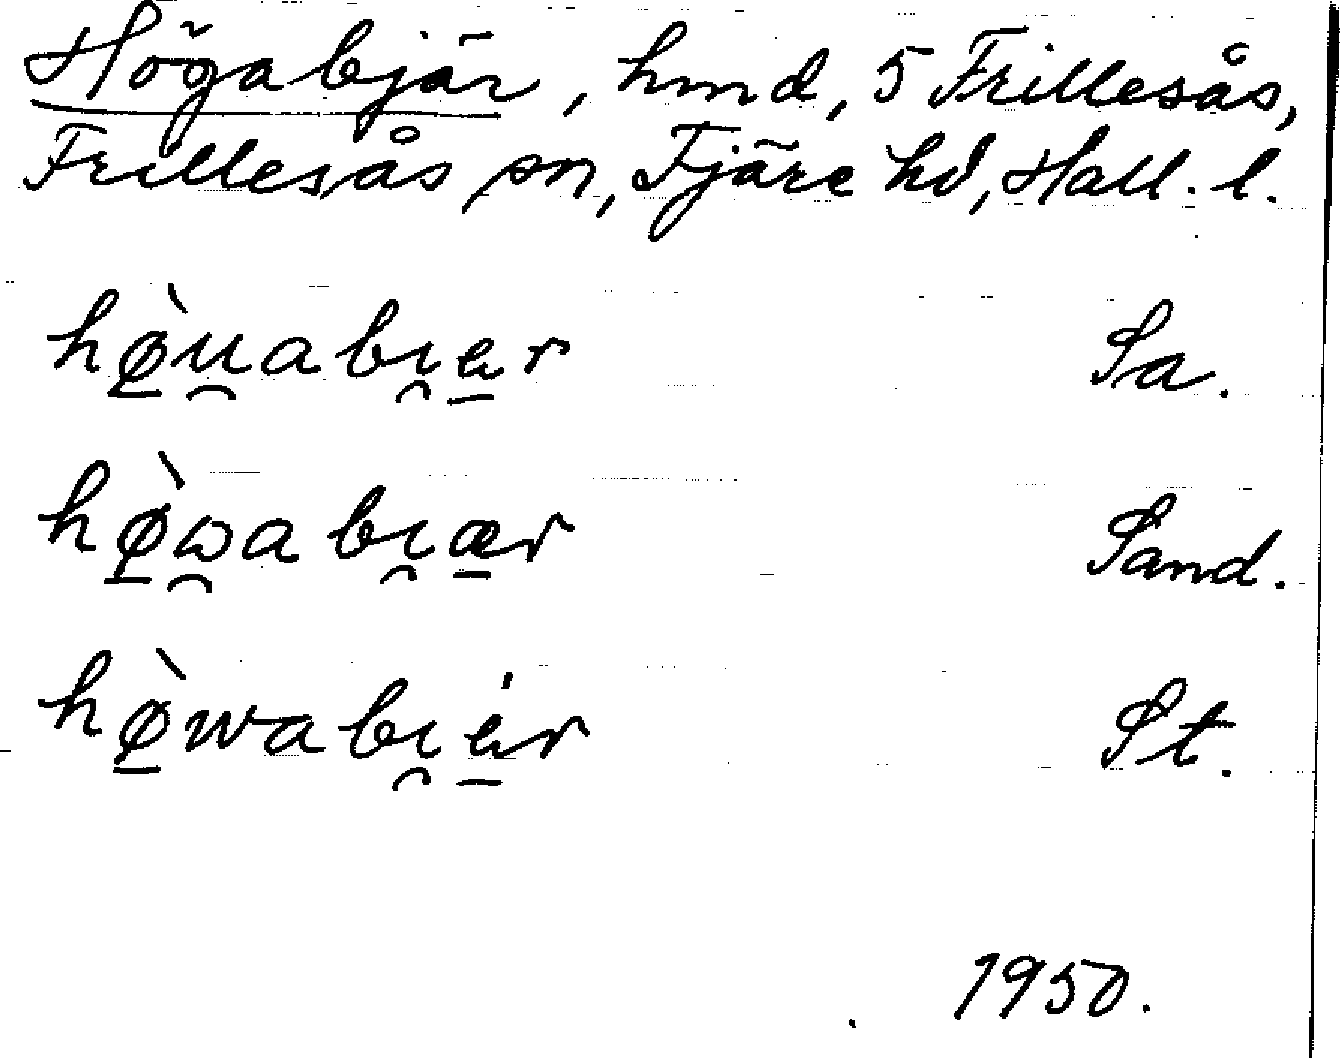 Högabjär, hmd, 5 Frillesås,
Frillesås sn, Fjäre hd, Hall. l.
hø̠̀u̯abı̯a̠r Sa.
hø̠̀ɷ̯abı̯æ̠r Sand.
hø̠̀wabı̯á̠r St.
1950.